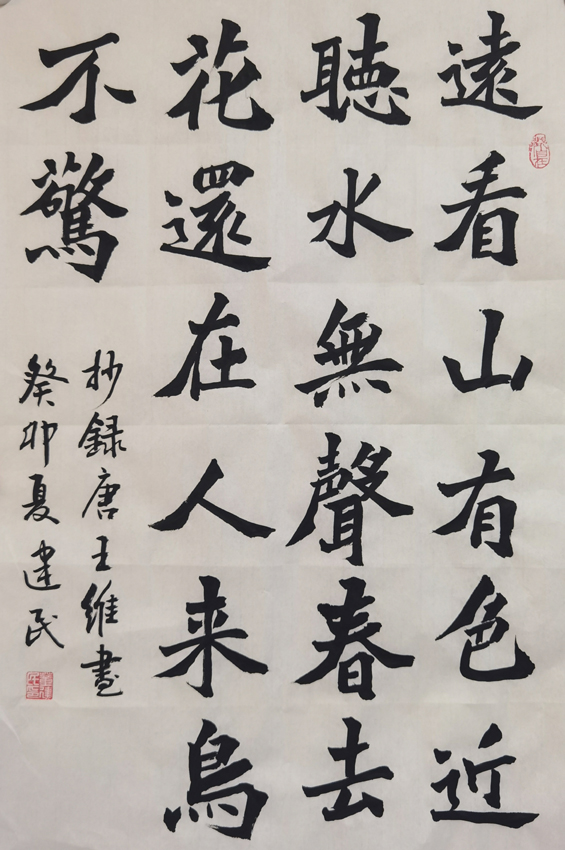 遠看山有色近
聽水無聲春去
花還在人来鳥
不驚
抄録唐王維畫
癸卯夏建民